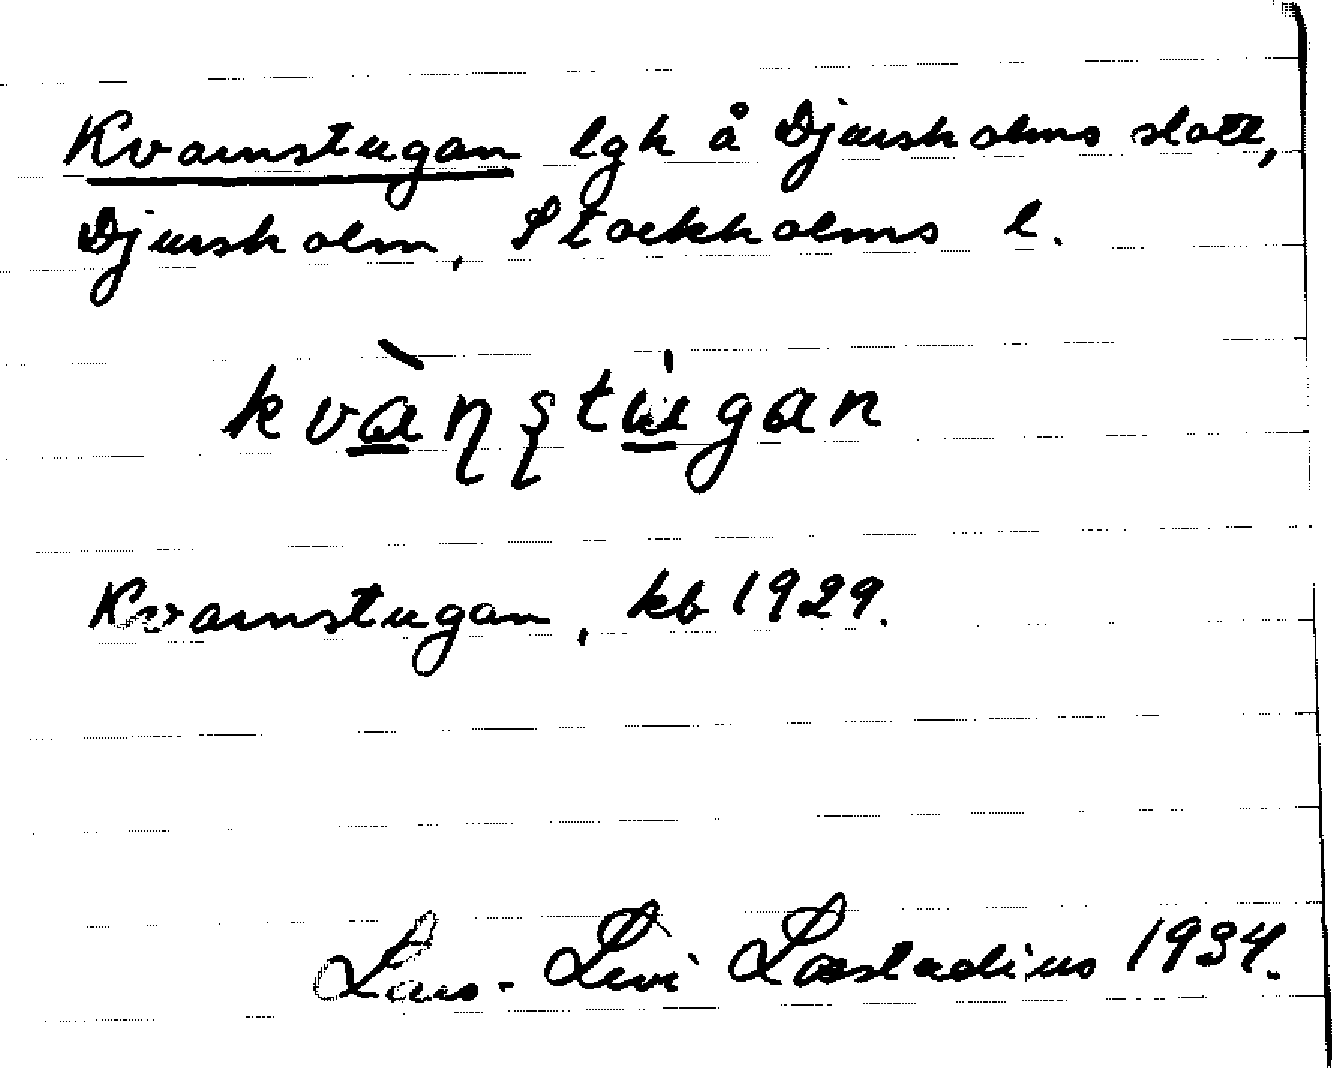 Kvarnstugan lgh å Djursholms slott,
Djursholm, Stockholms l.
kvàn̨ştu̍gan
Kvarnstugan, kb 1929.
Lars-Levi Læstadius 1934.